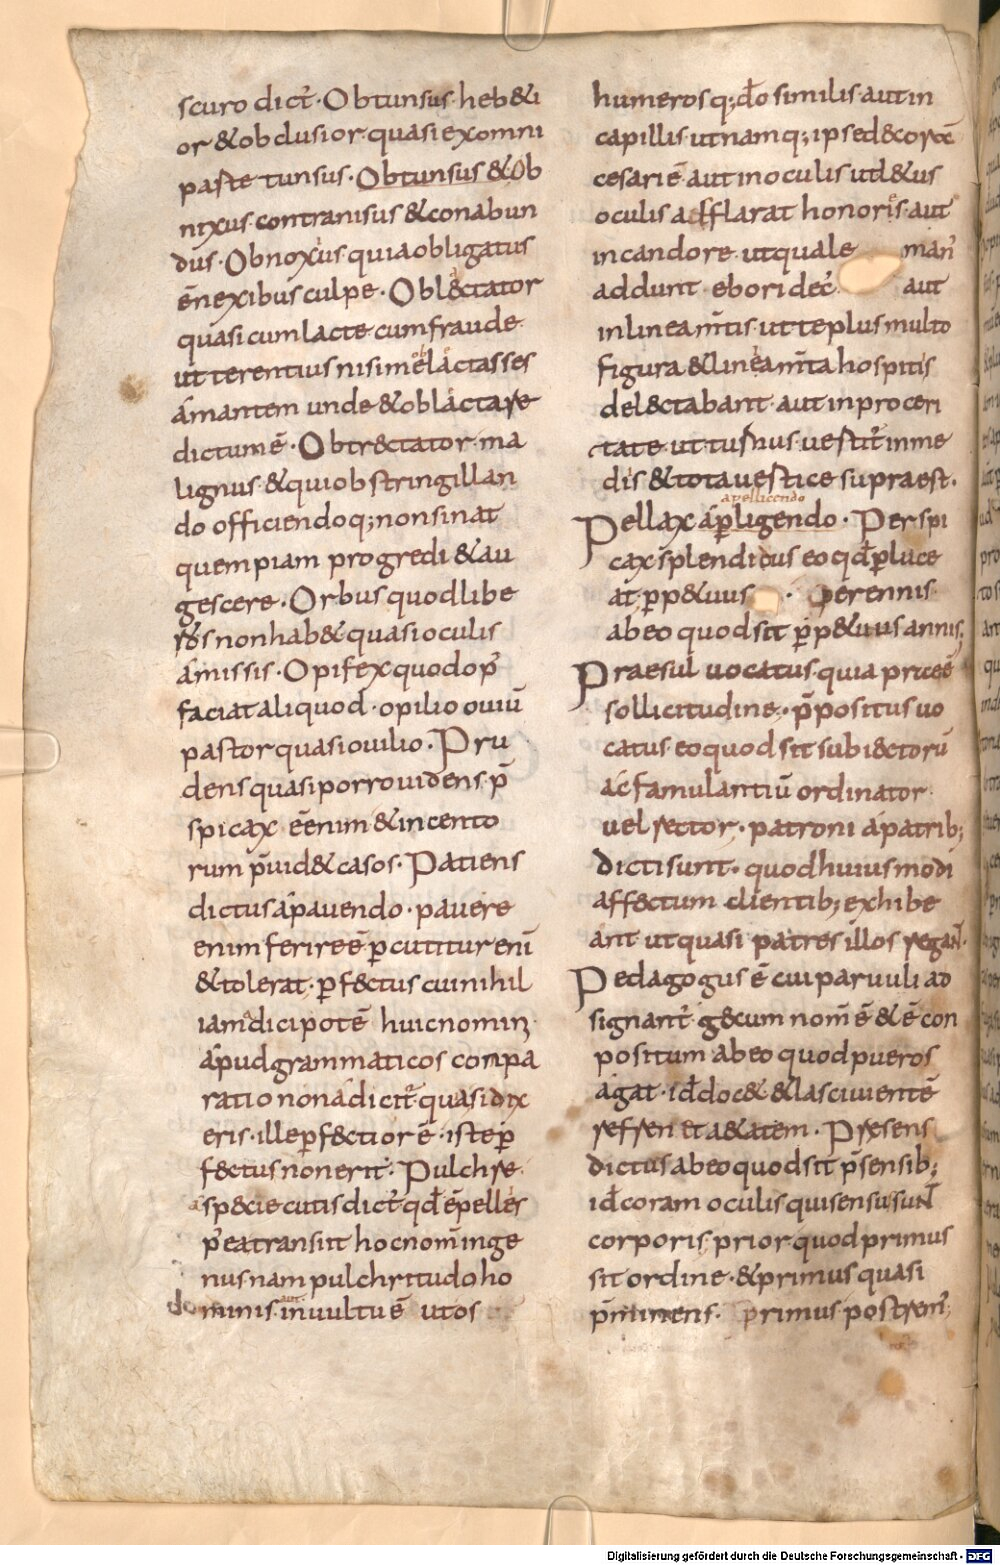 scuro dict̄· Obtunsus· heb&i
or &obclusior·quasi exomni
parte tunsus· Obtunsus &Ob
nixus contranisus &conabun
dus· Obnoxius quiaobligatus
ēnexibus culpe· Obl&ctator
quasi cumlacte cumfraude·
ut terentius nisimelactasses
ámantem unde &oblactare
dictumē· Obtr&ctator ma
lignus &quiobstringillan
do officiendoq; nonsinat
quempiam progredi &au
gescere· Orbus quodlibe
ros nonhab& quasioculis
ámissis· Opifex quodop̄
faciataliquod· opilio ouiū
pastorquasiouilio· Pru
dens quasiporrouidens p̄
spicax ēenim &incerto
rum p̄uid& casos· Patiens
dictus ápauendo· pauere
enim ferireē p̄cutitur enī
&tolerat· p̄f&ctus cuinihil
iamadicipotē huicnomini
ápudgrammaticos conpa
ratio nonádicit̄ quasidix
eris· ille p̄f&ctior ē· iste p̄
f&ctusnonerit· Pulchre·
asp&cie cutis dict̄ qd̄ ēpelles
p̄eatransiit hocnom̄ inge
nus nam pulchritudo ho
minis inuultu ē utos
humerosq; dō similis autin
capillis· utnamq; ipsed&corā
cesariē aut inoculis utl&us
oculis adflarat honoris· aut
incandore utquale man̄
addunt ebori dec̄ aut
inlineam̄tis· utteplusmulto
figura &lineam̄ta hospitis
del&ctabant· autinproceri
tate· ut turnus· uestit̄ inme
diis &totauestice supraest·
apellicendo
Pellax áp̄ligendo· Perspi
cax splendidus eo qd̄ p̄luce
at p̄p&uus · perennis
abeo quodsit p̄p&uus annis,
Praesul uocatus· quia praeē
sollicitudine· p̄positus uo
catus· eoquod sit subi&ctorū
ác famulantiū ordinator
uel rector· patroni ápatrib;
dictisunt· quodhuiusmodi
aff&ctum clientib; exhibe
ant utquasi patres illos regan̄·
Pedagogus ē cui paruuli ad
signant̄ g&cum nom̄ ē &ē con
positum abeo quod pueros
ágat· id̄ doc& &lasciuientē
refrenet a&atem· Presens
dictus abeoquodsit p̄sensib;
id̄ coram oculis quisensusun̄
corporis prior quodprimus
sit ordine· &primus quasi
p̄minens· primus postrem̄;
Digitalisierung gefördert durch die Deutsche Forschungsgemeinschaft · DFG